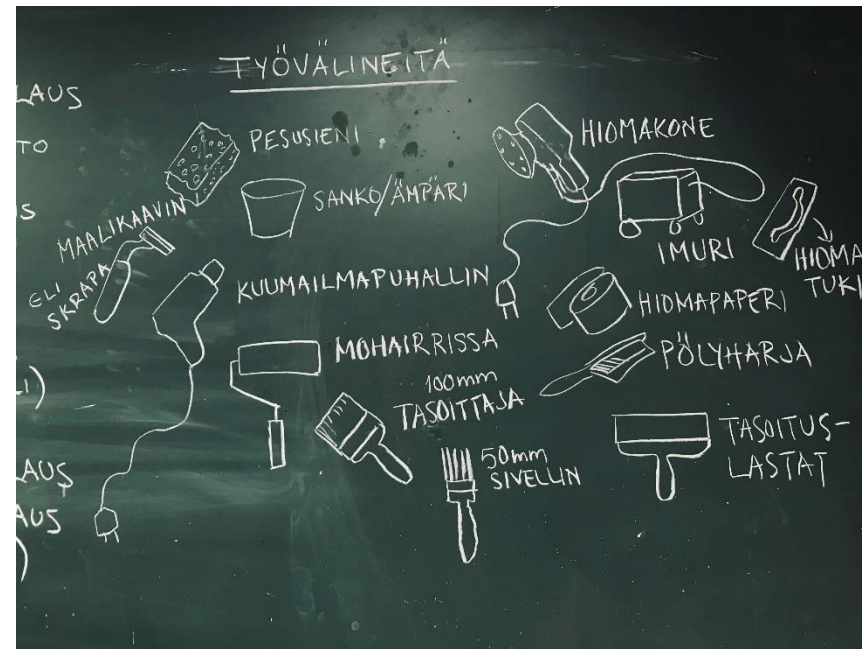 TYÖVÄLINEITÄ
LAUS
TO
US
LI)
LAUS
AUS
)
PESUSIENI
SANKO/ÄMPÄRI
MAALIKAAVIN
ELI
SKRAPA
KUUMAILMAPUHALLIN
MOHAIRRISSA
100mm
TASOITTAJA
50mm
SIVELLIN
HIOMAKONE
IMURI
HIOMA
TUKI
HIOMAPAPERI
PÖLYHARJA
TASOITUS-
LASTAT